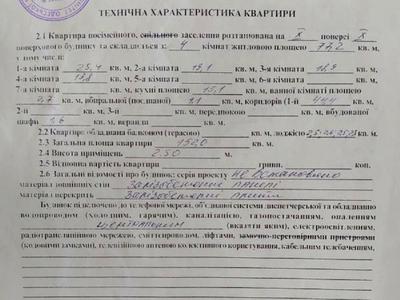 ТЕХНІЧНА ХАРАКТЕРИСТИКА КВАРТИРИ
2.1 Квартира посімейного, спільного заселення розташована на X поверсі X
поверхового будинку та складається з 4 кімнат житловою площею 77,2 кв. м,
у тому числі:
1-а кімната 25,4 кв. м, 2-а кімната 15,1 кв. м, 3-я кімната 18,9 кв. м,
4-а кімната 17,8 кв. м, 5-а кімната кв. м, 6-а кімната кв. м,
7-а кімната кв. м, кухні площею 15,1 кв. м, ванної кімнати площею
кв. м, вбиральні (поєднаної) 1,1 кв. м, коридорів (1-й 44,4 кв. м,
2-й кв. м, 3-й кв. м, передпокою кв. м, вбудованої
шафи 1,6 кв. м, веранда кв. м,
2.2 Квартира обладнана балконом (терасою) кв. м, лоджією кв. м
2.3 Загальна площа квартири кв. м.
2.4 Висота приміщень 2.50 м.
2.5 Відновна вартість квартири гривн. коп.
2.6 Загальні відомості про будинок: серія проекту не встановлено
матеріал зовнішніх стін залізобетонні панелі
матеріал перекрить Залізобетонні
Будинок підключено до телефонної мережі, об'єднаної системи диспетчерської та обладнано
водопроводом (холодним, гарячим), каналізацією, газопостачанням, опаленням
центральним (вказати яким), електроосвітленням,
радіотрансляційною мережею, сміттєпроводом, ліфтами, замочно-переговорними пристроями
(кодовими замками), телевізійною антеною колективного користування, кабельним телебаченням,